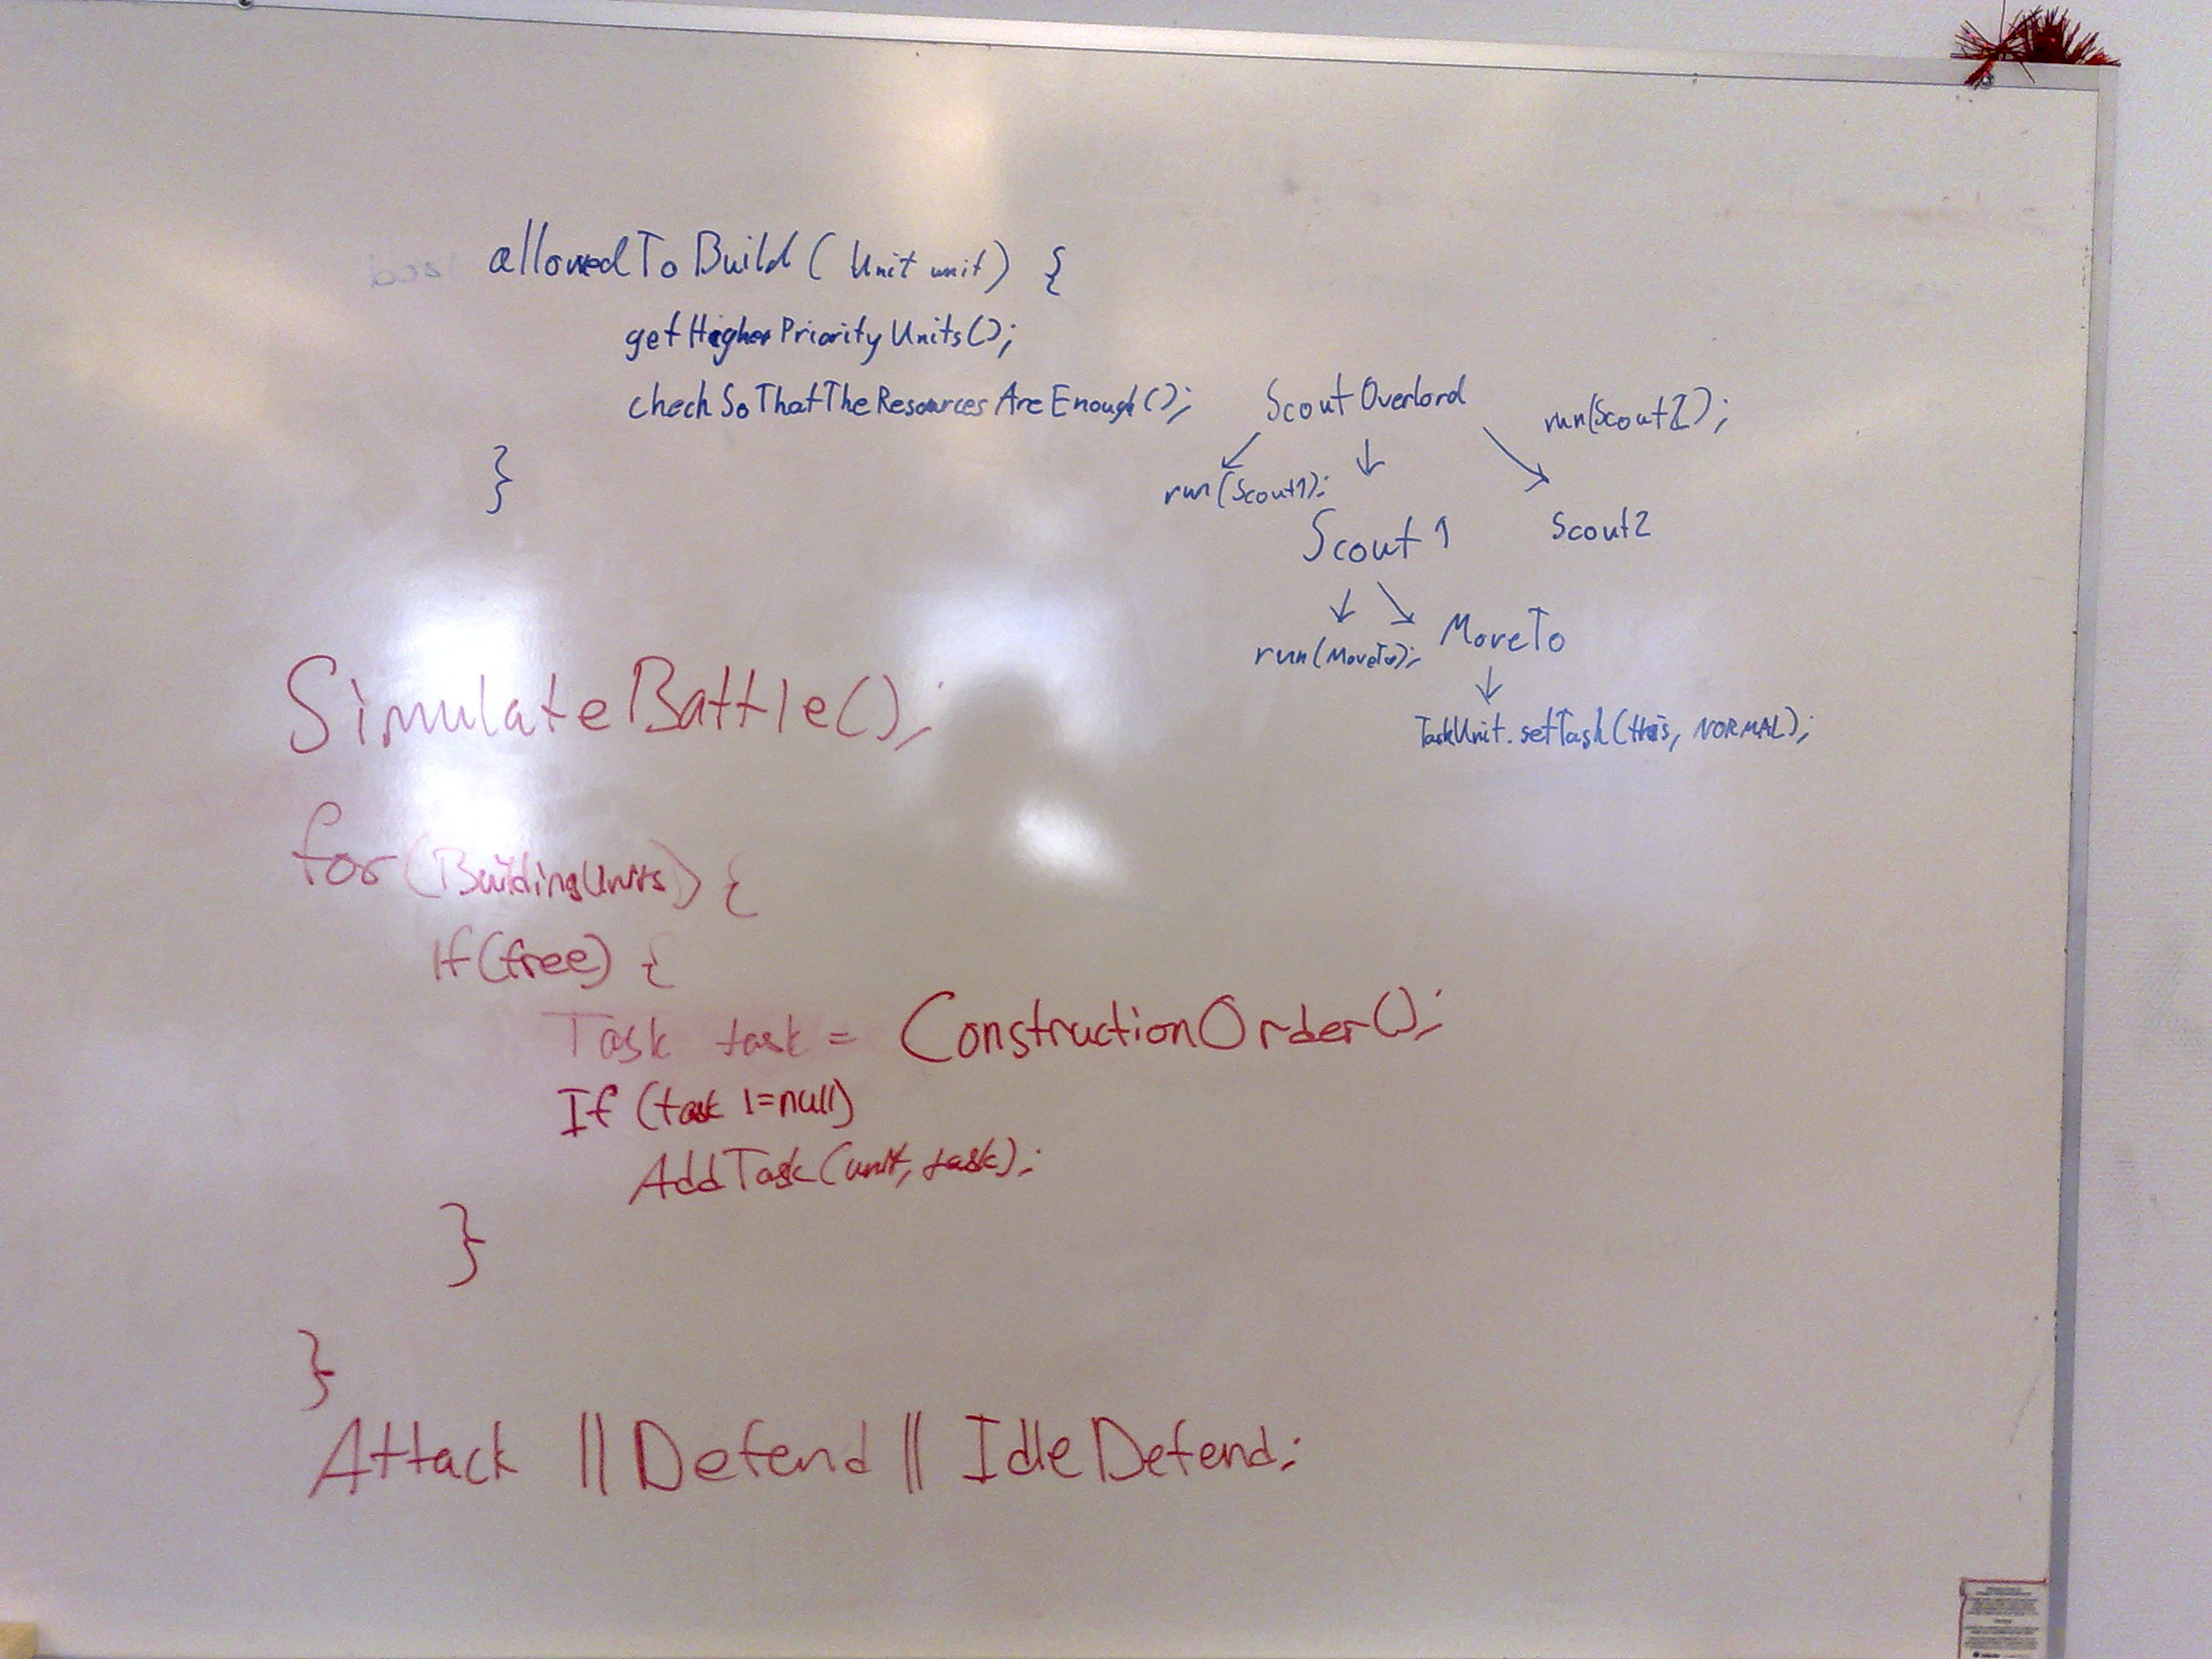 bool allowedToBuild(Unit unit) {
getHigherPriorityUnits();
checkSoThatTheResourcesAreEnough();
}
ScoutOverlord
run(Scout2);
run(Scout1);
Scout1
Scout2
run(MoveTo);
MoveTo
TaskUnit.setTask(this, NORMAL);
SimulateBattle();
for(BuildingUnits) {
If(free) {
Task task = ConstructionOrder();
If (task !=null)
AddTask(unit, task);
}
}
Attack || Defend || IdleDefend;